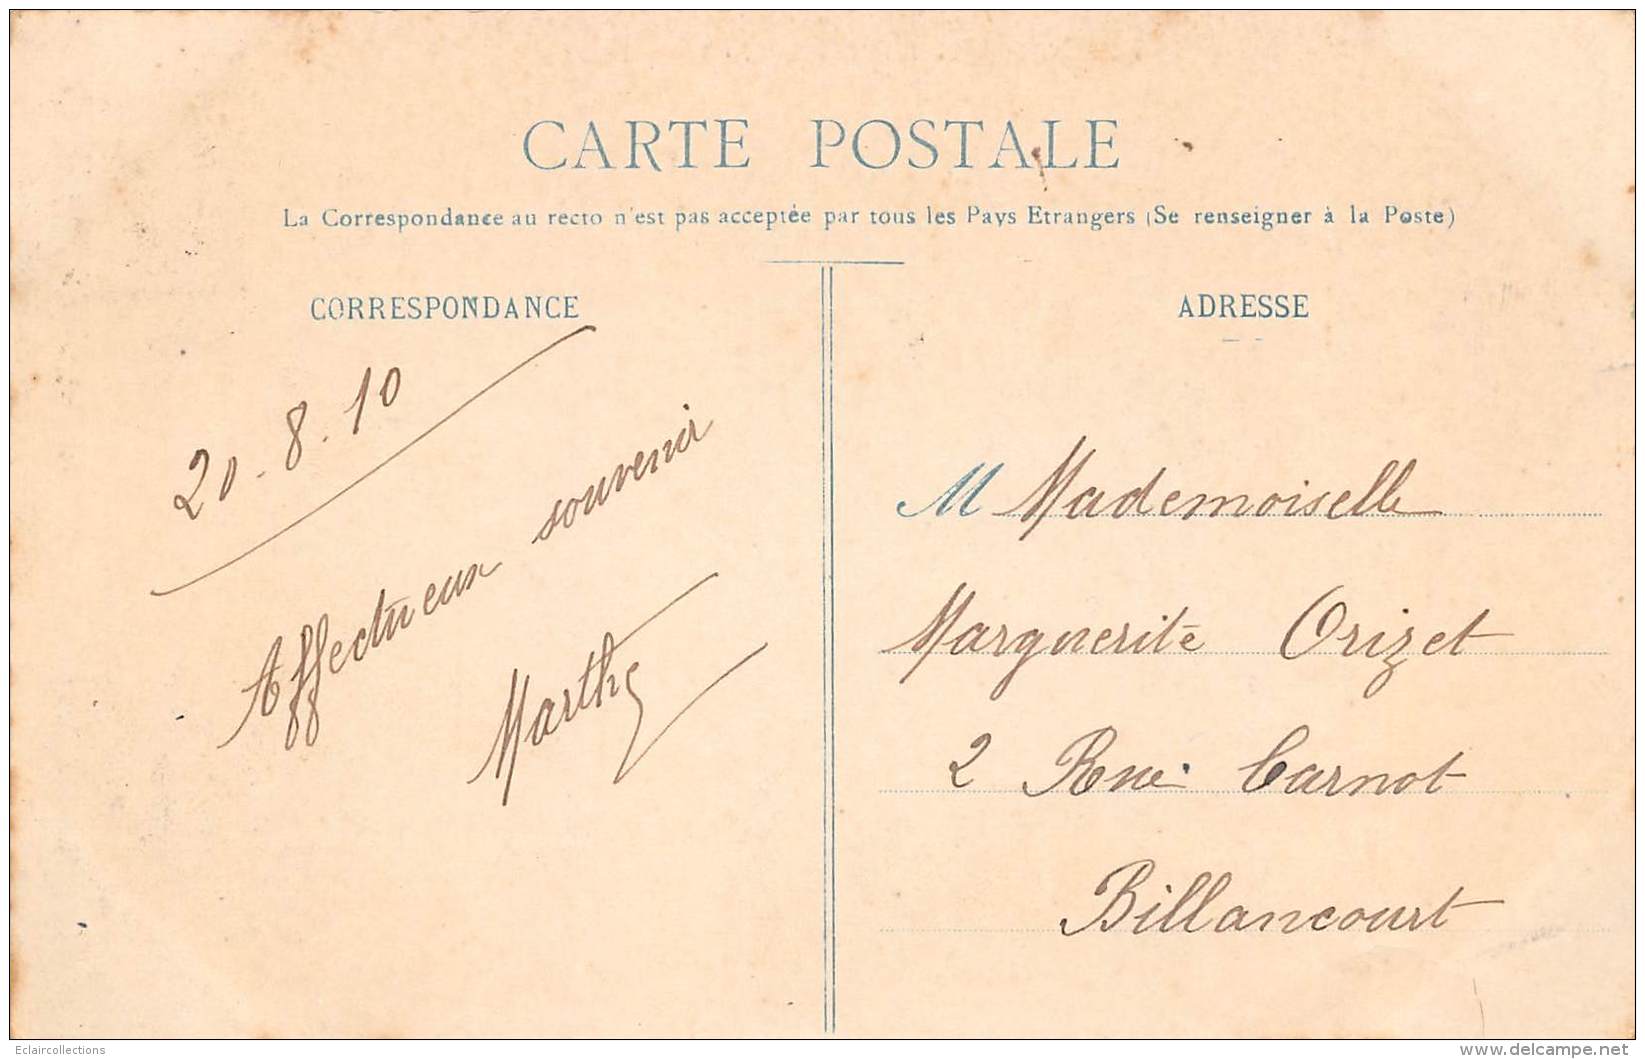 CARTE POSTALE
La Correspondance au recto n'est pas acceptée par tous les Pays Etrangers (Se renseigner à la Poste)
CORRESPONDANCE
20-8.10
Affectueux souvenir
Marthe
ADRESSE
M Mademoiselle
Marguerite Orizet
2 Rue Carnot
Billancourt
Eclaircollections
www.delcampe.net